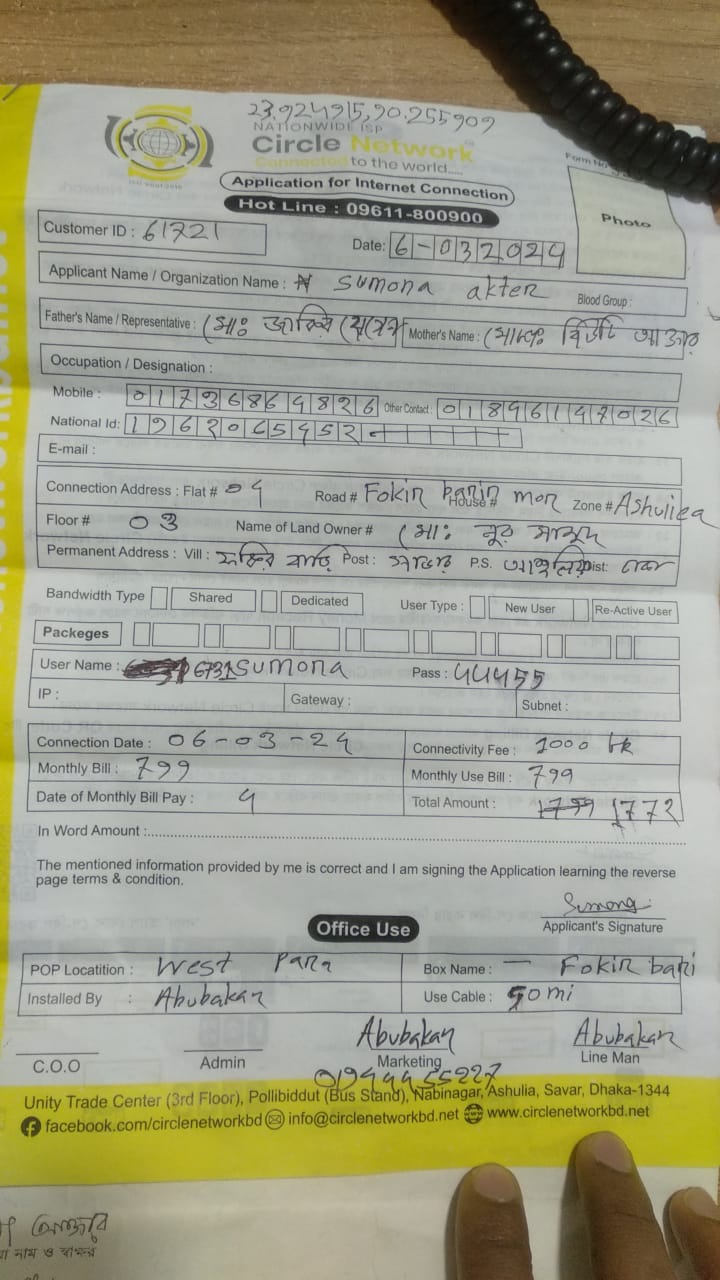 23.924915,90.255909
NATIONWIDE ISP
Circle Network
Connected to the world.....
Application for Internet Connection
Form No
Hot Line : 09611-800900
Photo
Customer ID : 61721
Date: 6-032024
Applicant Name / Organization Name : Sumona akter Blood Group :
Father's Name / Representative : মোঃ জাকির Mother's Name : মোছাঃ বিউটি আক্তার
Occupation / Designation :
Mobile : 01736864826 Other Contact : 01896147026
National Id: 1962065452
E-mail :
Connection Address : Flat # 04 Road # Fokir barir House # mor Zone # Ashuliea
Floor # 03 Name of Land Owner # মোঃ নুর
Permanent Address : Vill : ফকির বাড়ি Post : সাভার P.S. আশুলিয়া Dist: ঢাকা
Bandwidth Type Shared Dedicated User Type : New User Re-Active User
Packeges
User Name : 6731sumona Pass : 44455
IP : Gateway : Subnet :
Connection Date : 06-03-24 Connectivity Fee : 1000 tk
Monthly Bill : 799 Monthly Use Bill : 799
Date of Monthly Bill Pay : 4 Total Amount : 1799 1772
In Word Amount :
The mentioned information provided by me is correct and I am signing the Application learning the reverse
page terms & condition.
Sumona
Applicant's Signature
Office Use
POP Locatition : West Para Box Name : — Fokir bari
Installed By : Abubakar Use Cable : 50 mi
Abubakar Abubakar
C.O.O Admin Marketing Line Man
01944455227
Unity Trade Center (3rd Floor), Pollibiddut (Bus Stand), Nabinagar, Ashulia, Savar, Dhaka-1344
facebook.com/circlenetworkbd info@circlenetworkbd.net www.circlenetworkbd.net